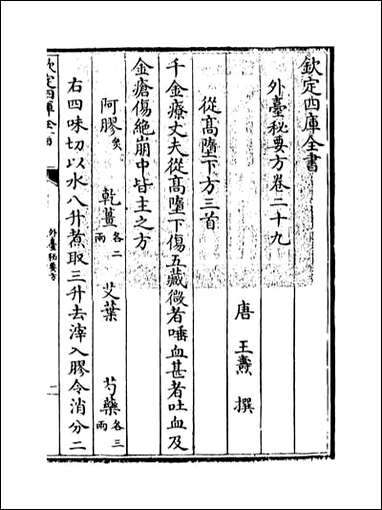 欽定四庫全書
外臺秘要方卷二十九
唐 王燾 撰
從髙墮下方三首
千金療丈夫從髙墮下傷五藏微者唾血甚者吐血及
金瘡傷絶崩中皆主之方
阿膠炙 乾薑各二兩 艾葉 芍藥各三兩
右四味切以水八升煮取三升去滓入膠令消分二
欽定四庫全書
外臺秘要方